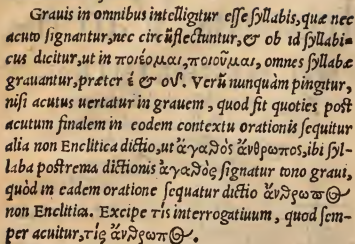 Grauis in omnibus intelligitur esse syllabis, quæ nec
acuto signantur, nec circūflectuntur, & ob id syllabi-
cus dicitur, ut in ποιέομαι, ποιοῦμαι, omnes syllabæ
grauantur, præter έ & οῦ. Verū nunquàm pingitur,
nisi acutus uertatur in grauem, quod fit quoties post
acutum finalem in eodem contextu orationis sequitur
alia non Enclitica dictio, ut ἀγαθὸς ἄνθρωπος, ibi syl-
laba postrema dictionis ἀγαθὸς signatur tono graui,
quòd in eadem oratione sequatur dictio ἄνθρωπος
non Enclitica. Excipe τίς interrogatiuum, quod sem-
per acuitur, τίς ἄνθρωπος.